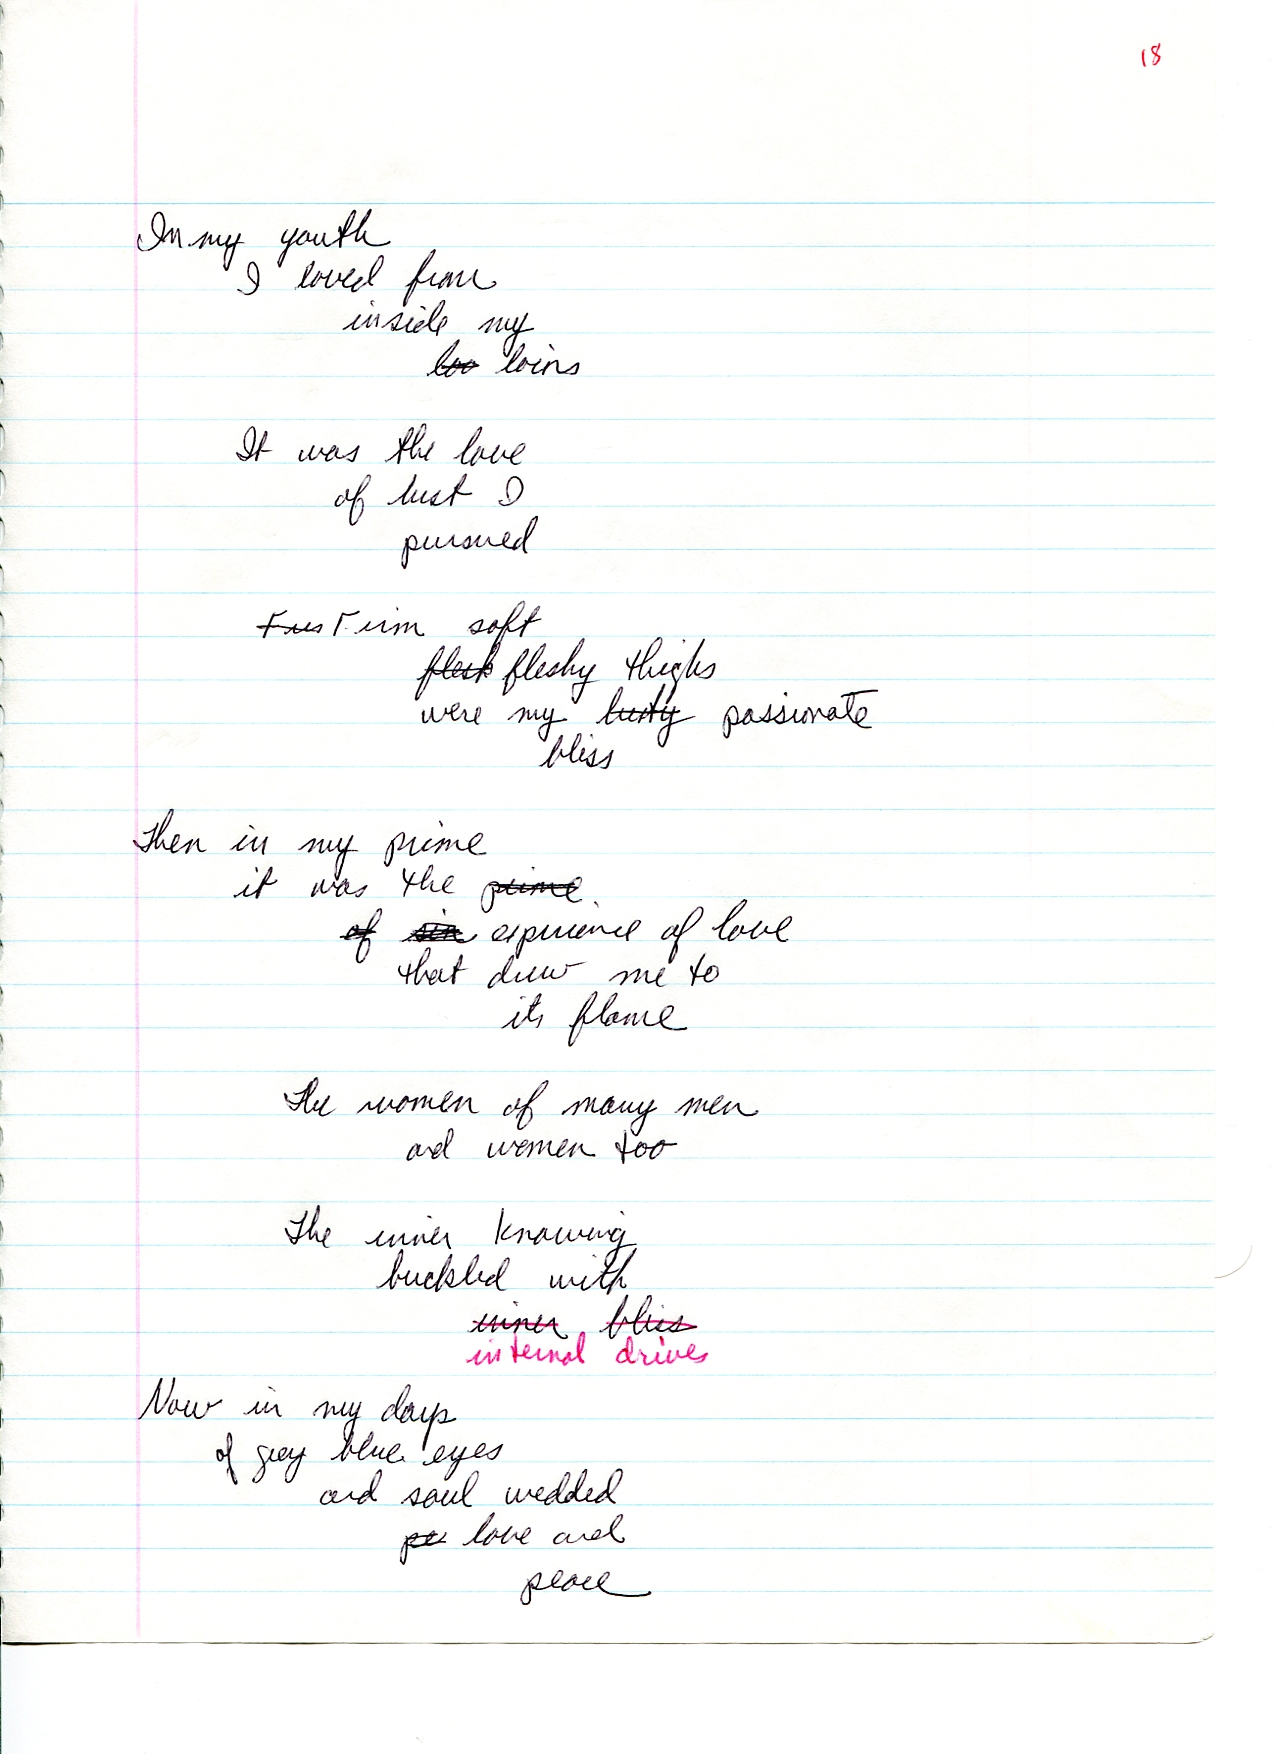 18
In my youth
I loved from
inside my
loo loins
It was the love
of lust I
pursued
Firm soft
flesh fleshy thighs
were my lusty passionate
bliss
Then in my prime
it was the prime
of sin experience of love
that drew me to
its flame
The women of many men
and women too
The inner knowing
buckled with
inner bliss
internal drives
Now in my days
of grey blue eyes
and soul wedded
love and
peace